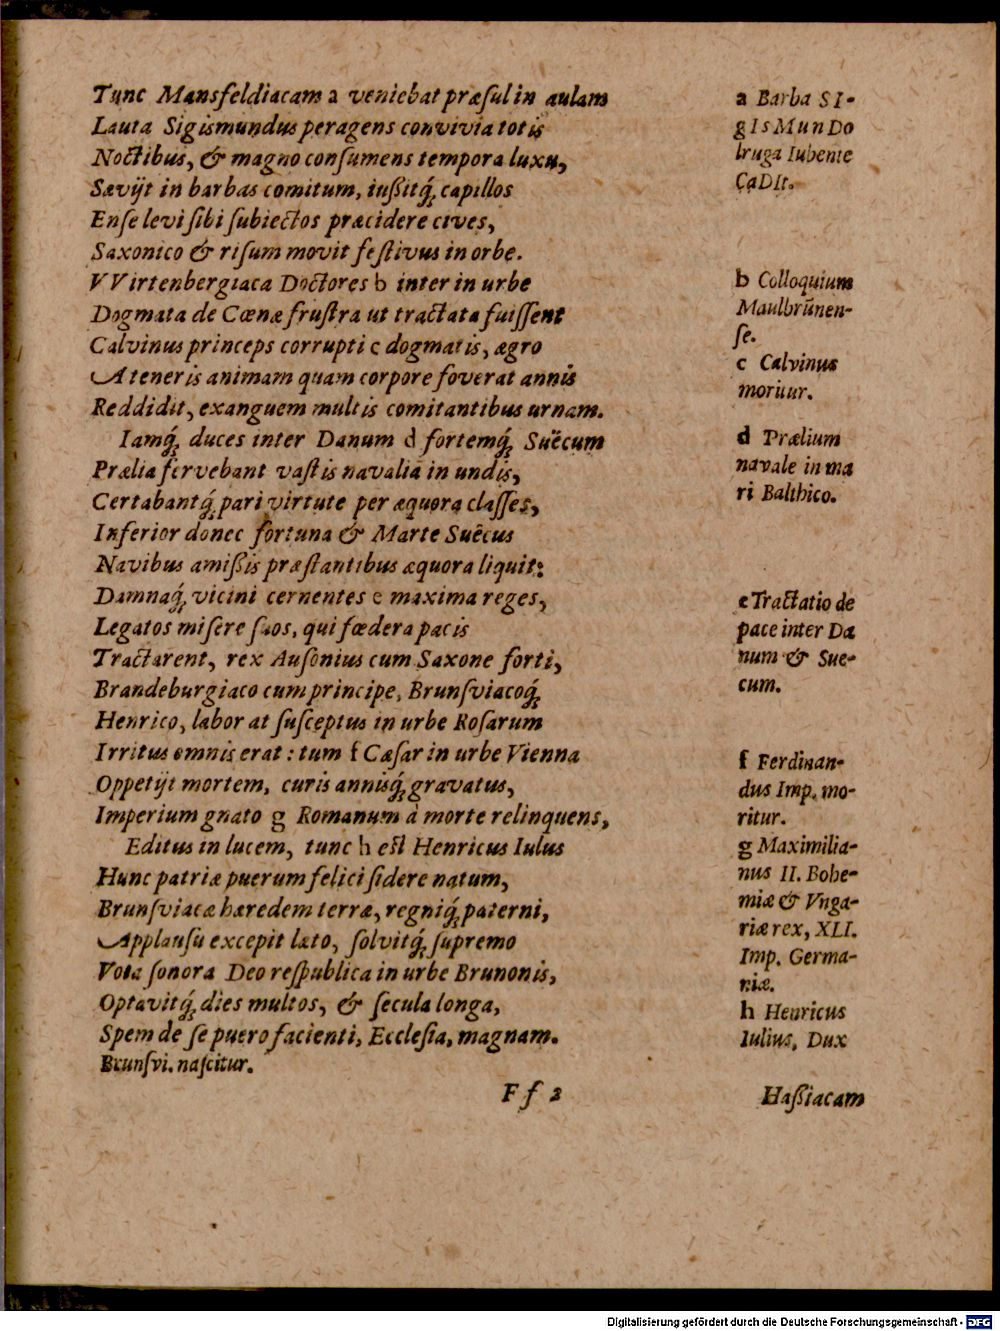 Tunc Mansfeldiacam a veniebat præſul in aulam
Lauta Sigismundus peragens convivia totis
Noctibus, & magno conſumens tempora luxu,
Sævijt in barbas comitum, iußitq́; capillos
Enſe levi ſibi ſubiectos præcidere cives,
Saxonico & riſum movit feſtivus in orbe.
VVirtenbergiaca Doctores b inter in urbe
Dogmata de Cœnæ fruſtra ut tractata fuiſſent
Calvinus princeps corrupti c dogmatis, ægro
A teneris animam quam corpore foverat annis
Reddidit, exanguem multis comitantibus urnam.
Iamq́; duces inter Danum d fortemq́; Suêcum
Prælia fervebant vaſtis navalia in undis,
Certabantq́; pari virtute per æquora claſſes,
Inferior donec fortuna & Marte Suêcus
Navibus amißis præſtantibus æquora liquit:
Damnaq́; vicini cernentes e maxima reges,
Legatos miſere ſuos, qui fœdera pacis
Tractarent, rex Auſonius cum Saxone forti,
Brandeburgiaco cum principe, Brunſviacoq́;
Henrico, labor at ſuſceptus in urbe Roſarum
Irritus omnis erat: tum f Cæſar in urbe Vienna
Oppetijt mortem, curis annisq́; gravatus,
Imperium gnato g Romanum à morte relinquens,
Editus in lucem, tunc h eſt Henricus Iulus
Hunc patriæ puerum felici ſidere natum,
Brunſviacæ hæredem terræ, regniq́; paterni,
Applauſu excepit læto, ſolvitq́; ſupremo
Vota ſonora Deo reſpublica in urbe Brunonis,
Optavitq́; dies multos, & ſecula longa,
Spem de ſe puero facienti, Eccleſia, magnam.
Brunſvi. naſcitur.
a Barba SI-
gIsMunDo
Iruga Iubente
CaDIt.
b Colloquium
Maulbrũnen-
ſe.
c Calvinus
moritur.
d Prælium
navale in ma
ri Balthico.
e Tractatio de
pace inter Da
num & Sue-
cum.
f Ferdinan-
dus Imp. mo-
ritur.
g Maximilia-
nus II. Bohe-
miæ & Vnga-
riæ rex, XLI.
Imp. Germa-
niæ.
h Henricus
Iulius, Dux
Ff 2
Haßiacam
Digitalisierung gefördert durch die Deutsche Forschungsgemeinschaft - DFG